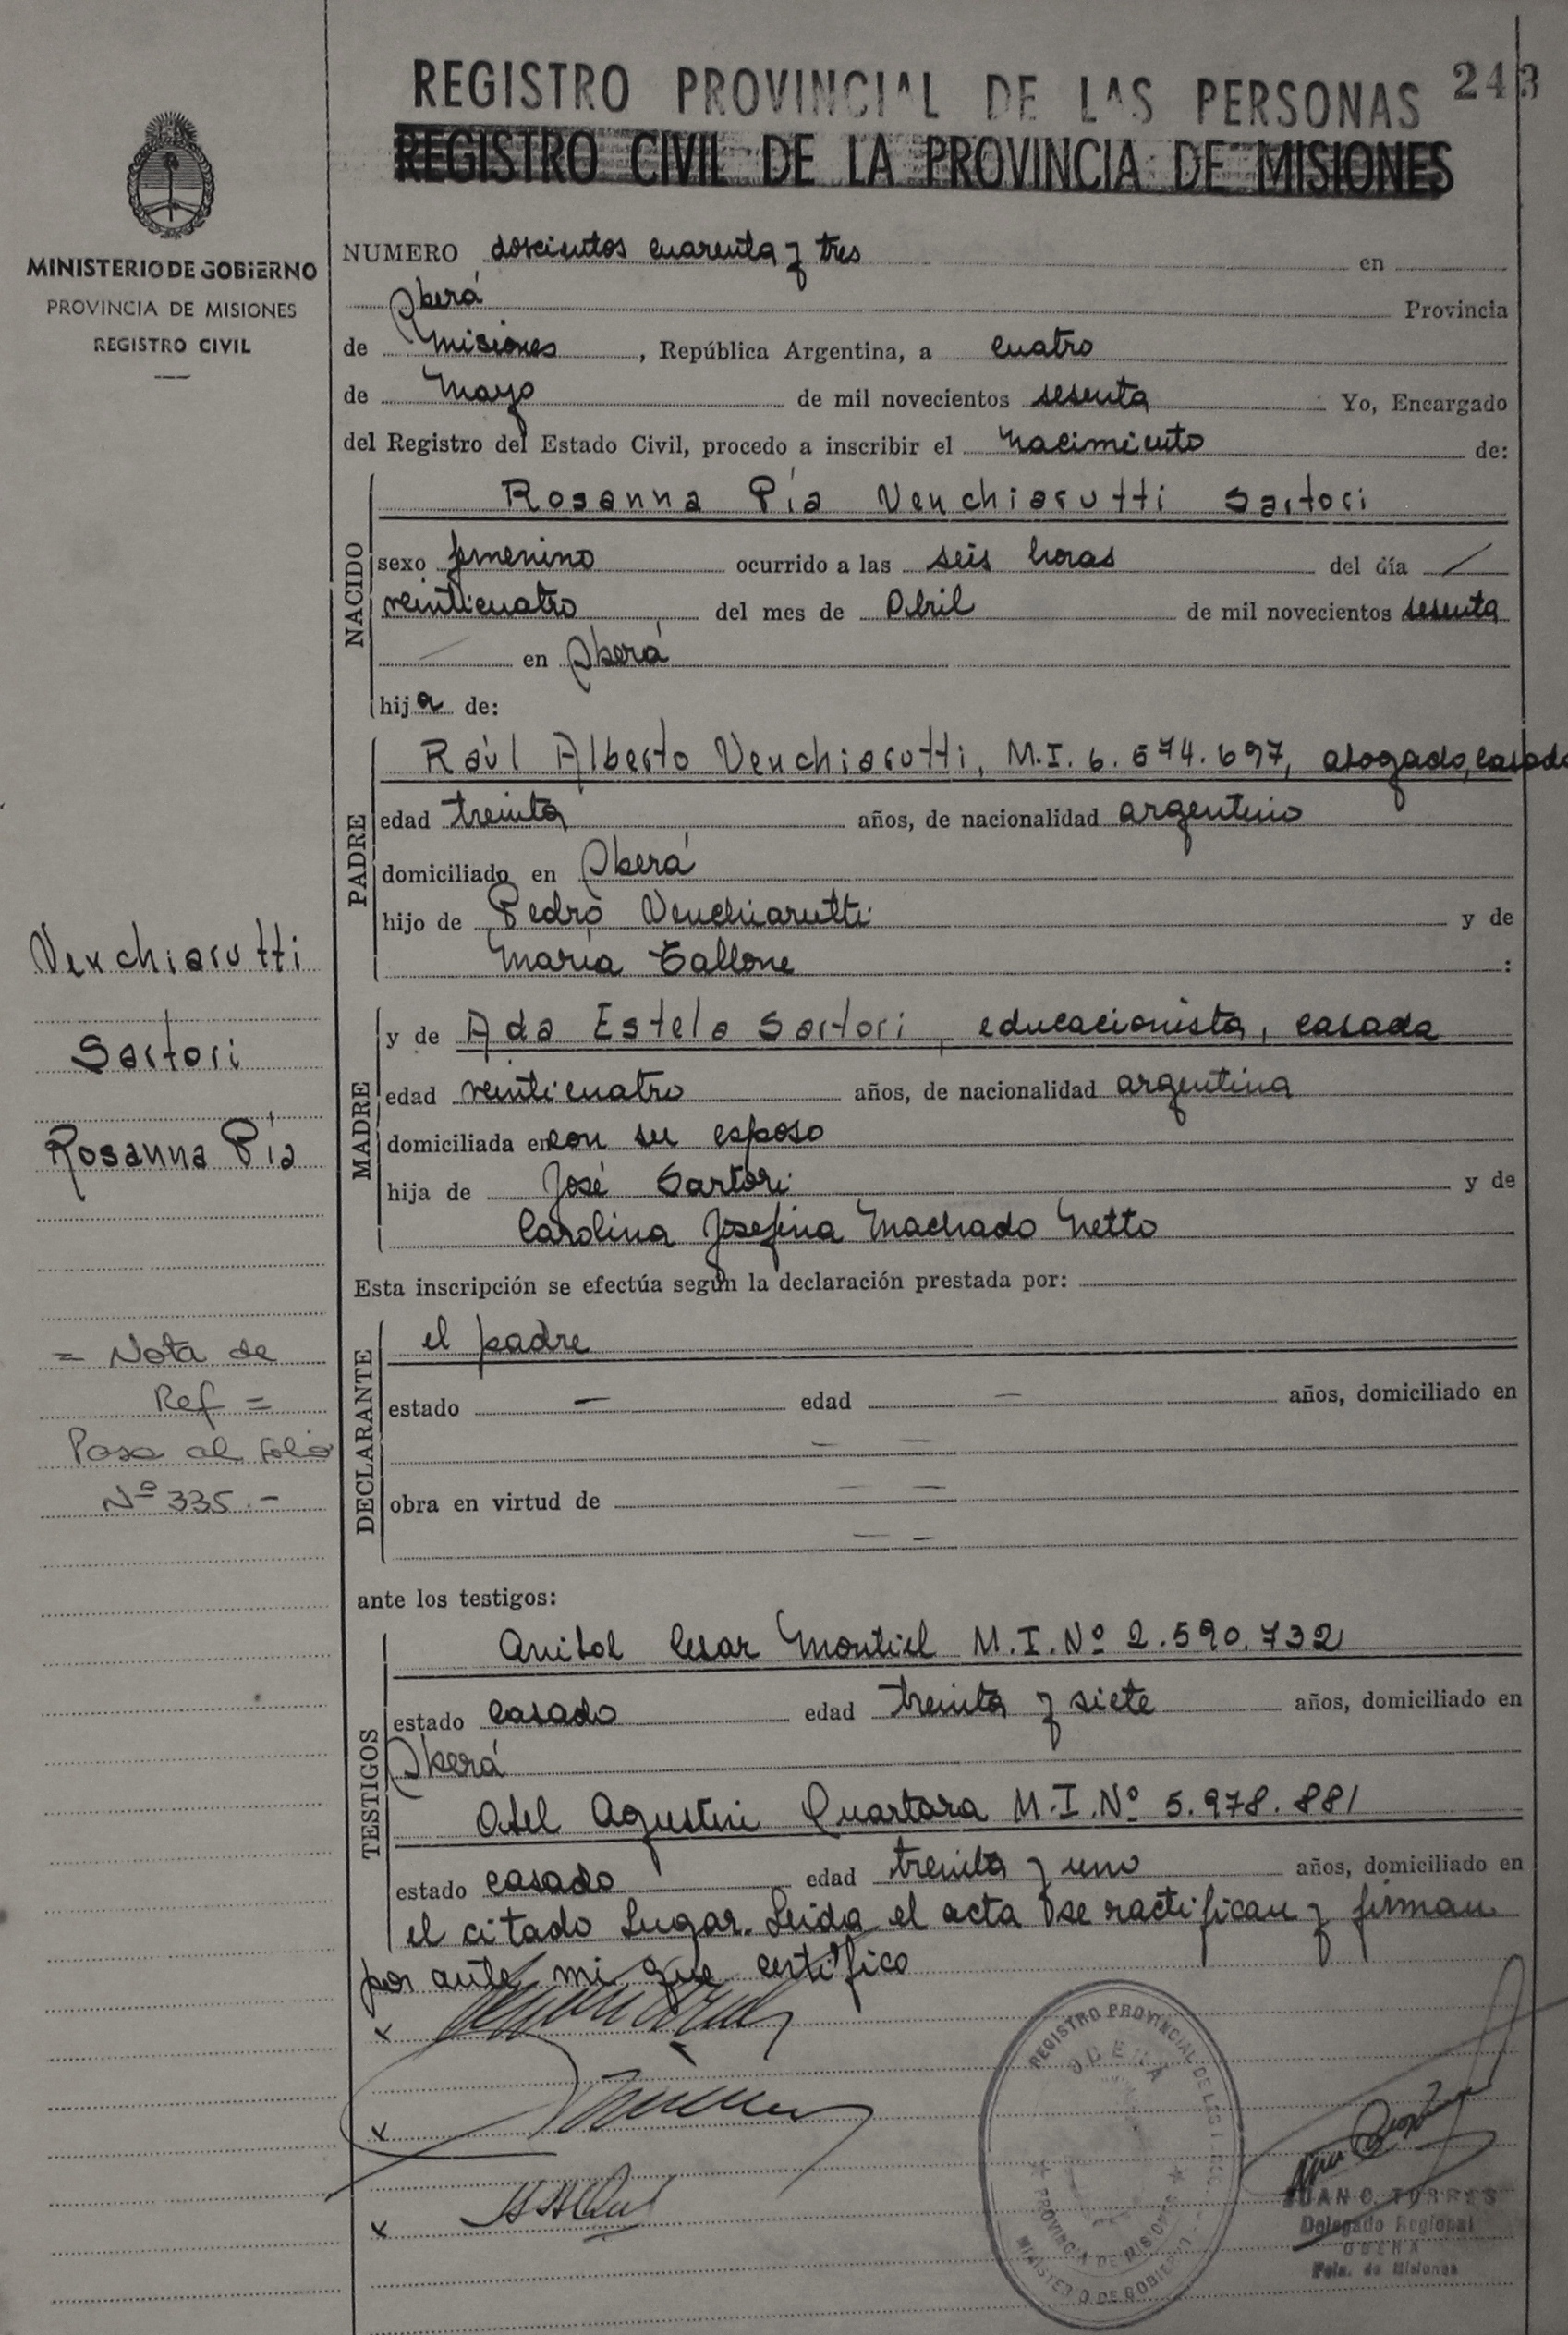 REGISTRO PROVINCIAL DE LAS PERSONAS 243
REGISTRO CIVIL DE LA PROVINCIA DE MISIONES
MINISTERIO DE GOBIERNO
PROVINCIA DE MISIONES
REGISTRO CIVIL
NUMERO doscientos cuarenta y tres en
Oberá Provincia
de Misiones, República Argentina, a cuatro
de Mayo de mil novecientos sesenta Yo, Encargado
del Registro del Estado Civil, procedo a inscribir el nacimiento de:
NACIDO
Rosanna Pía Venchiarutti Sartori
sexo femenino ocurrido a las seis horas del día
veinticuatro del mes de Abril de mil novecientos sesenta
en Oberá
hija de:
PADRE
Raúl Alberto Venchiarutti, M.I. 6.574.697, abogado, casado
edad treinta años, de nacionalidad argentino
domiciliado en Oberá
hijo de Pedro Venchiarutti y de
María Tallone :
Venchiarutti
Sartori
Rosanna Pía
MADRE
y de Ada Estela Sartori, educacionista, casada
edad veinticuatro años, de nacionalidad argentina
domiciliada en con su esposo
hija de José Sartori y de
Carolina Josefina Machado Netto
Esta inscripción se efectúa según la declaración prestada por:
= Nota de
Ref =
Pasa al folio
Nº 335.-
DECLARANTE
el padre
estado — edad — años, domiciliado en
— —
obra en virtud de — —
— —
ante los testigos:
TESTIGOS
Cesar Montiel M.I.Nº 2.590.732
estado casado edad treinta y siete años, domiciliado en
Oberá
Agustin Quartara M.I.Nº 5.978.881
estado casado edad treinta y uno años, domiciliado en
el citado lugar. Leida el acta se ractifican y firman
por ante mi que certifico
x
x
x
REGISTRO PROVINCIAL DE LAS
OBERÁ
PROVINCIA DE MISIONES
MINISTERIO DE GOBIERNO
JUAN C. TORRES
Delegado Regional
OBERA
Pcia. de Misiones